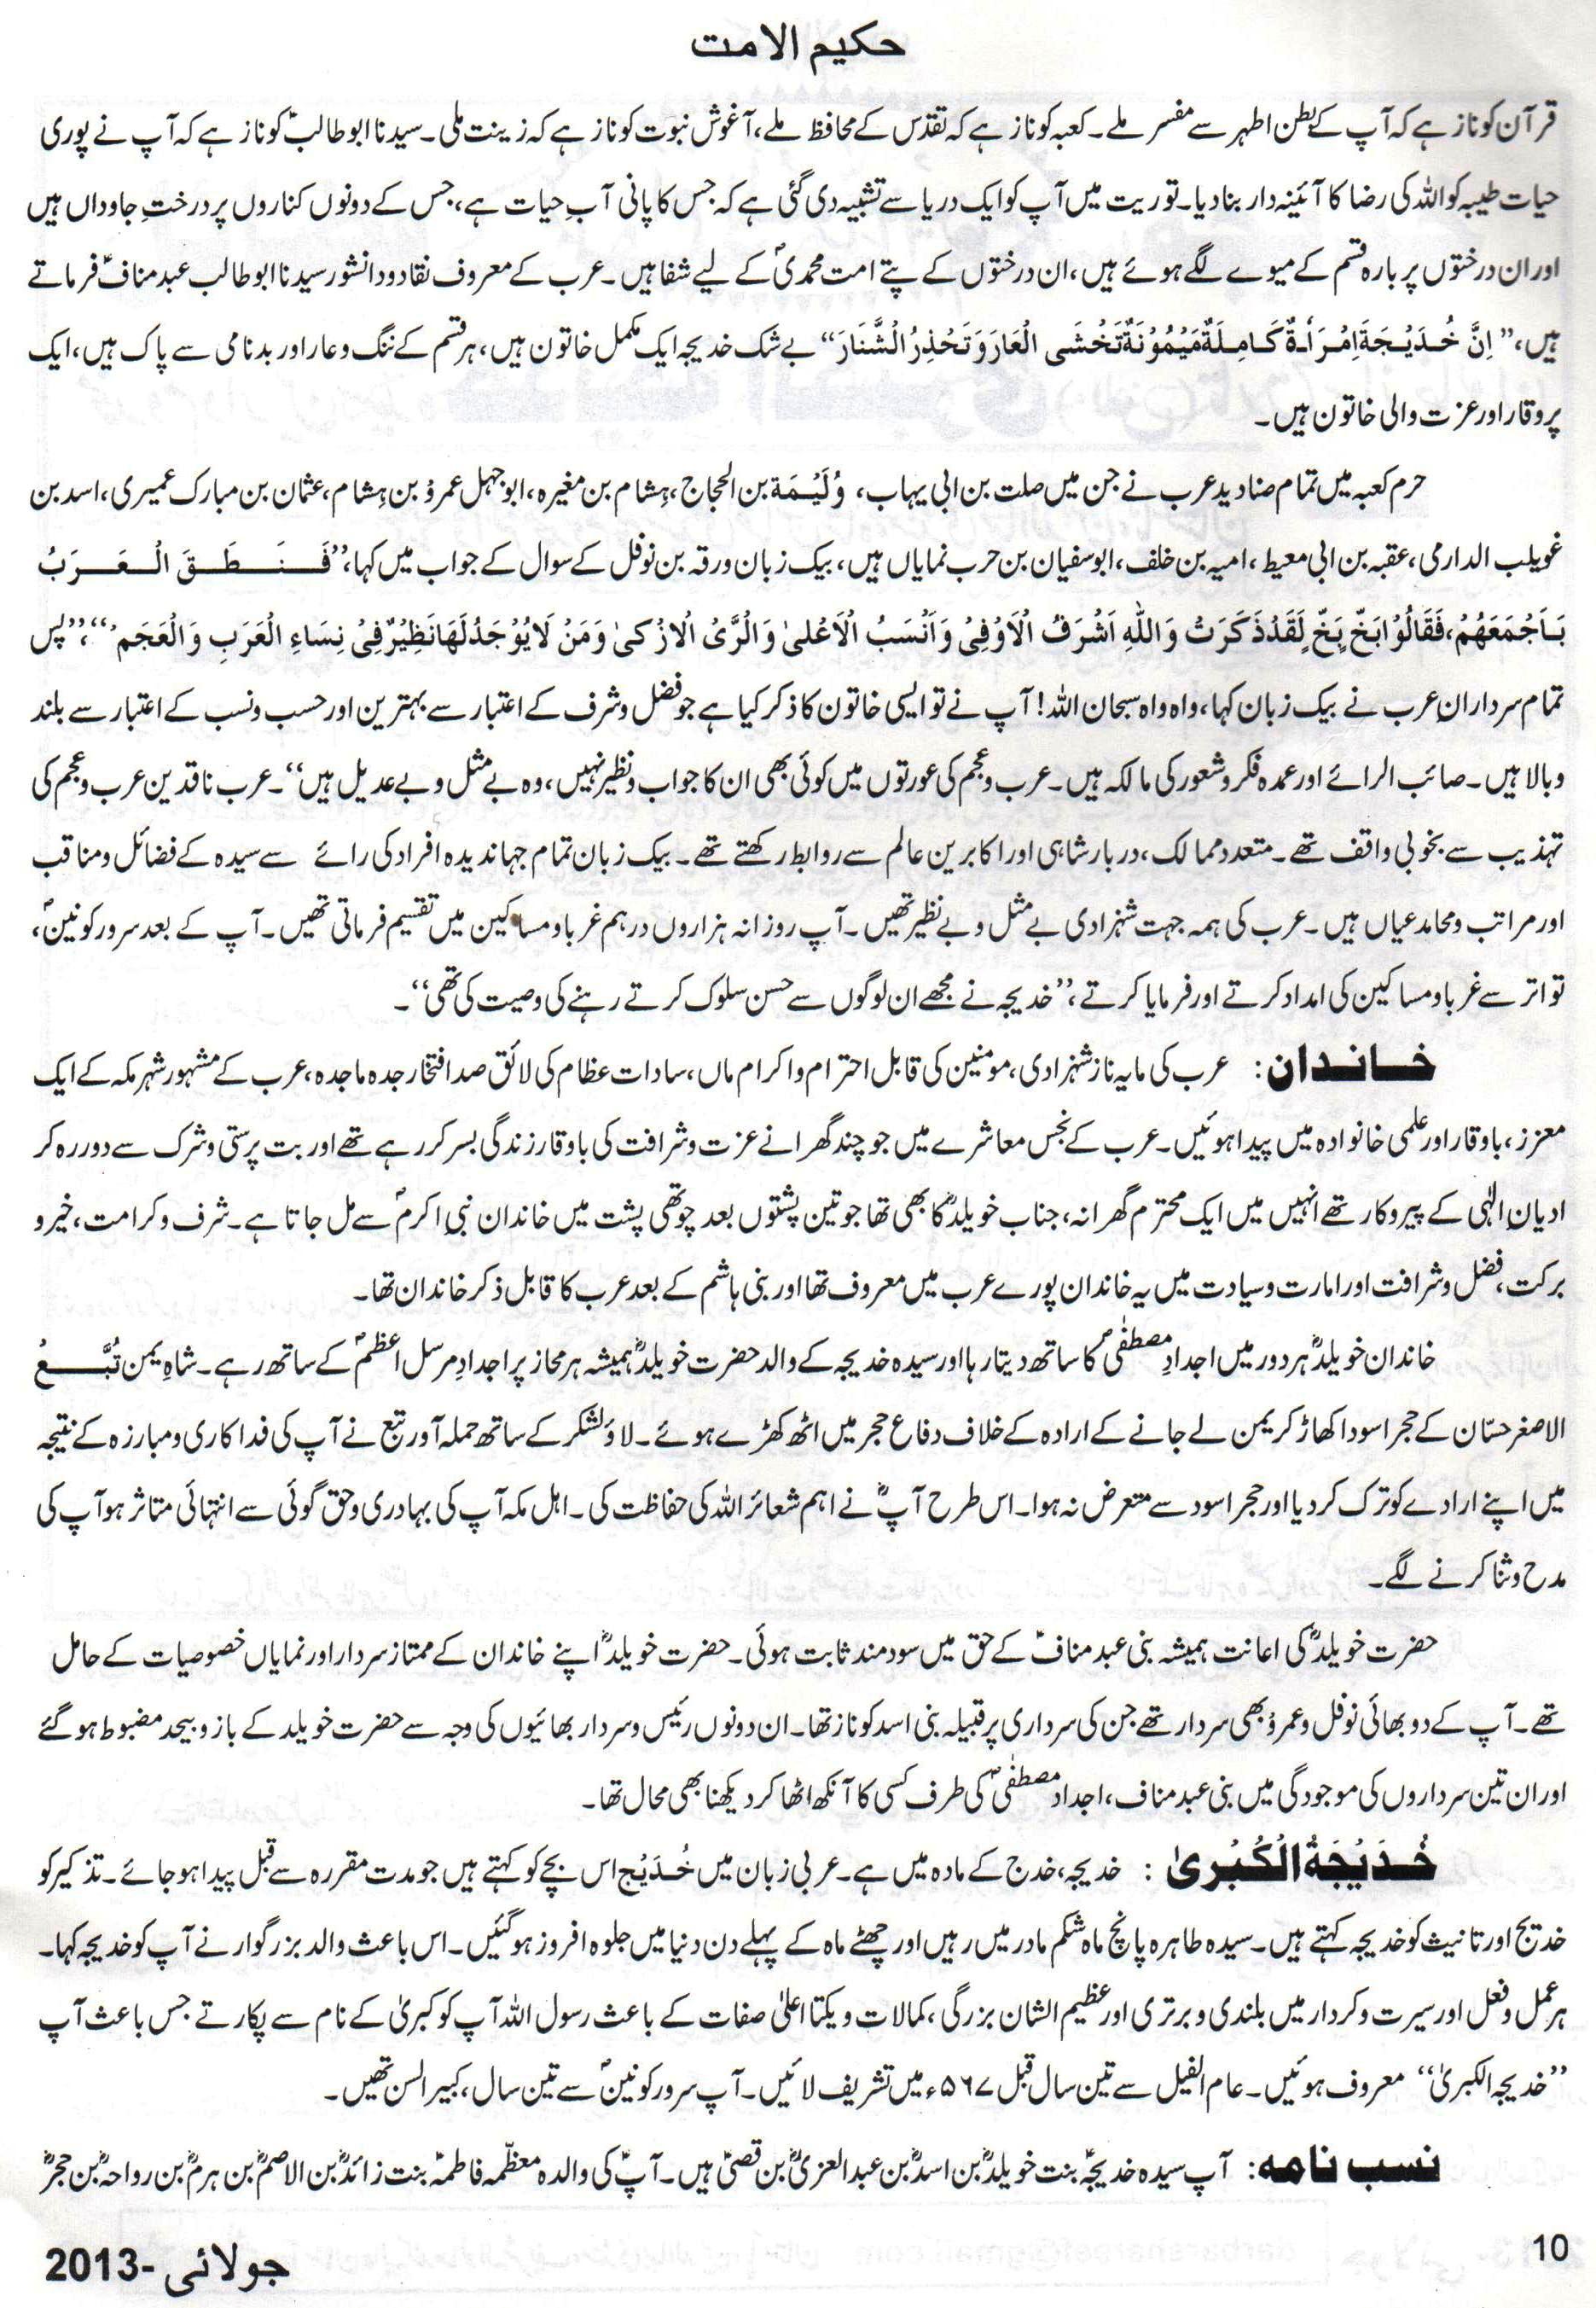 حکیم الامت
قرآن کو ناز ہے کہ آپ کے بطن اطہر سے مفسر ملے۔ کعبہ کو ناز ہے کہ تقدس کے محافظ ملے، آغوش نبوت کو ناز ہے کہ زینت ملی۔ سیدنا ابوطالبؑ کو ناز ہے کہ آپ نے پوری
حیات طیبہ کو اللہ کی رضا کا آئینہ دار بنا دیا۔ توریت میں آپ کو ایک دریا سے تشبیہ دی گئی ہے کہ جس کا پانی آبِ حیات ہے، جس کے دونوں کناروں پر درختِ جاوداں ہیں
اور ان درختوں پر بارہ قسم کے میوے لگے ہوئے ہیں، ان درختوں کے پتے امت محمدیؐ کے لیے شفا ہیں۔ عرب کے معروف نقاد و دانشور سیدنا ابوطالب عبد منافؑ فرماتے
ہیں، ”اِنَّ خُدَیْجَةَ اِمْرَأَةٌ کَامِلَةٌ مَیْمُوْنَةٌ تَخْشَی الْعَارَ وَ تَحْذِرُ الْشَّنَارَ“ بے شک خدیجہ ایک مکمل خاتون ہیں، ہر قسم کے ننگ و عار اور بدنامی سے پاک ہیں، ایک
پروقار اور عزت والی خاتون ہیں۔
حرم کعبہ میں تمام صنادید عرب نے جن میں صلت بن ابی یہاب، وُلَیْمَة بن الحجاج، ہشام بن مغیرہ، ابوجہل عمروْ بن ہشام، عثمان بن مبارک عمیری، اسد بن
غویلب الدارمی، عقبہ بن ابی معیط، امیہ بن خلف، ابوسفیان بن حرب نمایاں ہیں، بیک زبان ورقہ بن نوفل کے سوال کے جواب میں کہا، ”فَنَطَقَ الْعَرَبُ
بَاَجْمَعَهُمْ، فَقَالُوْا بَخّ بَخّ لَقَدْ ذَکَرَتْ وَ اللّٰہِ اَشْرَفُ الْاَوْفِیْ وَ اَنْسَبُ الْاَعْلیٰ وَ الْرَّیُ الْازْکیٰ وَ مَنْ لَا یُوْجَدُ لَهَا نَظِیْرٌ فِیْ نِسَاءِ الْعَرَبِ وَ الْعَجَم“، ”پس
تمام سردارانِ عرب نے بیک زبان کہا، واہ واہ سبحان اللہ! آپ نے تو ایسی خاتون کا ذکر کیا ہے جو فضل و شرف کے اعتبار سے بہترین اور حسب و نسب کے اعتبار سے بلند
و بالا ہیں۔ صائب الرائے اور عمدہ فکر و شعور کی مالکہ ہیں۔ عرب و عجم کی عورتوں میں کوئی بھی ان کا جواب و نظیر نہیں، وہ بے مثل و بے عدیل ہیں“۔ عرب ناقدین عرب و عجم کی
تہذیب سے بخوبی واقف تھے۔ متعدد ممالک، دربار شاہی اور اکابرین عالم سے روابط رکھتے تھے۔ بیک زبان تمام جہاندیدہ افراد کی رائے سے سیدہ کے فضائل و مناقب
اور مراتب و محامد عیاں ہیں۔ عرب کی ہمہ جہت شہزادی بے مثل و بے نظیر تھیں۔ آپ روزانہ ہزاروں درہم غربا و مساکین میں تقسیم فرماتی تھیں۔ آپ کے بعد سرور کونینؐ،
تواتر سے غربا و مساکین کی امداد کرتے اور فرمایا کرتے، ”خدیجہ نے مجھے ان لوگوں سے حسن سلوک کرتے رہنے کی وصیت کی تھی“۔
خاندان: عرب کی مایہ ناز شہزادی، مومنین کی قابل احترام و اکرام ماں، سادات عظام کی لائق صد افتخار جدہ ماجدہ، عرب کے مشہور شہر مکہ کے ایک
معزز، باوقار اور علمی خانوادہ میں پیدا ہوئیں۔ عرب کے نجس معاشرے میں جو چند گھرانے عزت و شرافت کی باوقار زندگی بسر کر رہے تھے اور بت پرستی و شرک سے دور رہ کر
ادیانِ الٰہی کے پیروکار تھے انہیں میں ایک محترم گھرانہ، جناب خویلدؓ کا بھی تھا جو تین پشتوں بعد چوتھی پشت میں خاندان نبی اکرمؐ سے مل جاتا ہے۔ شرف و کرامت، خیر و
برکت، فضل و شرافت اور امارت و سیادت میں یہ خاندان پورے عرب میں معروف تھا اور بنی ہاشم کے بعد عرب کا قابل ذکر خاندان تھا۔
خاندان خویلدؓ ہر دور میں اجدادِ مصطفیؐ کا ساتھ دیتا رہا اور سیدہ خدیجہ کے والد حضرت خویلدؓ ہمیشہ ہر محاز پر اجدادِ مرسل اعظمؐ کے ساتھ رہے۔ شاہِ یمن تُبَّعُ
الاصغر حسّان کے حجر اسود اکھاڑ کر یمن لے جانے کے ارادہ کے خلاف دفاع حجر میں اٹھ کھڑے ہوئے۔ لاؤ لشکر کے ساتھ حملہ آور تبع نے آپ کی فداکاری و مبارزہ کے نتیجہ
میں اپنے ارادے کو ترک کر دیا اور حجر اسود سے متعرض نہ ہوا۔ اس طرح آپؓ نے اہم شعائر اللہ کی حفاظت کی۔ اہل مکہ آپ کی بہادری و حق گوئی سے انتہائی متاثر ہو آپ کی
مدح و ثنا کرنے لگے۔
حضرت خویلدؓ کی اعانت ہمیشہ بنی عبد منافؑ کے حق میں سودمند ثابت ہوئی۔ حضرت خویلدؓ اپنے خاندان کے ممتاز سردار اور نمایاں خصوصیات کے حامل
تھے۔ آپ کے دو بھائی نوفل و عمروْ بھی سردار تھے جن کی سرداری پر قبیلہ بنی اسد کو ناز تھا۔ ان دونوں رئیس و سردار بھائیوں کی وجہ سے حضرت خویلد کے بازو بیحد مضبوط ہو گئے
اور ان تین سرداروں کی موجودگی میں بنی عبد مناف، اجداد مصطفیؐ کی طرف کسی کا آنکھ اٹھا کر دیکھنا بھی محال تھا۔
خُدَیْجَةُ الْکُبْریٰ: خدیجہ، خدج کے مادہ میں ہے۔ عربی زبان میں خُدَیْج اس بچے کو کہتے ہیں جو مدت مقررہ سے قبل پیدا ہو جائے۔ تذکیر کو
خدیج اور تانیث کو خدیجہ کہتے ہیں۔ سیدہ طاہرہ پانچ ماہ شکم مادر میں رہیں اور چھٹے ماہ کے پہلے دن دنیا میں جلوہ افروز ہو گئیں۔ اس باعث والد بزرگوار نے آپ کو خدیجہ کہا۔
ہر عمل و فعل اور سیرت و کردار میں بلندی و برتری اور عظیم الشان بزرگی، کمالات و یکتا اعلیٰ صفات کے باعث رسول اللہ آپ کو کبریٰ کے نام سے پکارتے جس باعث آپ
”خدیجہ الکبریٰ“ معروف ہوئیں۔ عام الفیل سے تین سال قبل ۵۶۷ء میں تشریف لائیں۔ آپ سرور کونینؐ سے تین سال، کبیر السن تھیں۔
نسب نامه: آپ سیدہ خدیجہؑ بنت خویلدؓ بن اسدؓ بن عبد العزیٰؓ بن قصیؑ ہیں۔ آپؑ کی والدہ معظّمہ فاطمہؑ بنت زائدؓ بن الاصمؓ بن ہرمؓ بن رواحہؓ بن حجرؓ
10
جولائی -2013